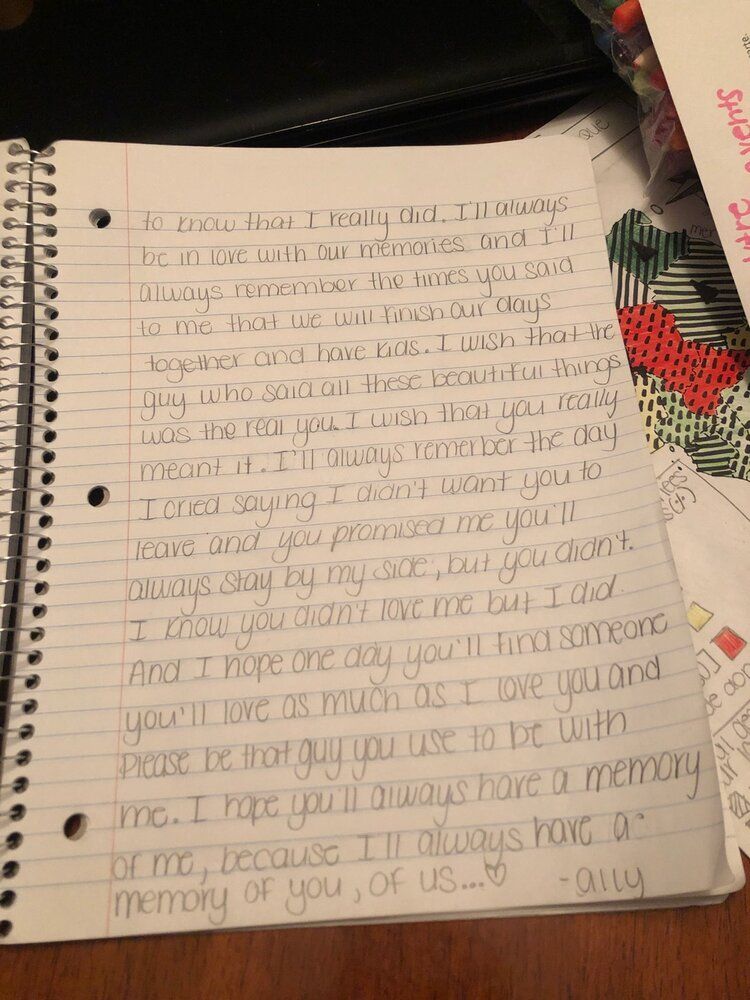 to know that I really did. I'll always
be in love with our memories and I'll
always remember the times you said
to me that we will finish our days
together and have kids. I wish that the
guy who said all these beautiful things
was the real you. I wish that you really
meant it. I'll always remerber the day
I cried saying I didn't want you to
leave and you promised me you'll
always stay by my side, but you didn't.
I know you didn't love me but I did.
And I hope one day you'll find someone
you'll love as much as I love you and
Please be that guy you use to be with
me. I hope you'll always have a memory
of me, because I'll always have a
memory of you, of us...♡ -ally